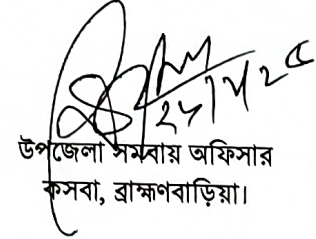 উপজেলা সমবায় অফিসার
কসবা, ব্রাহ্মণবাড়িয়া।